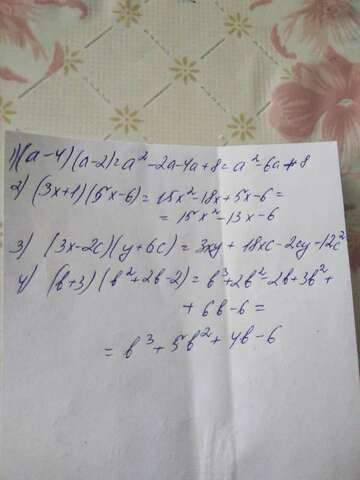 1) (a-4)(a-2)=a²-2a-4a+8=a²-6a+8
2) (3x+1)(5x-6)=15x²-18x+5x-6=
=15x²-13x-6
3) (3x-2c)(y+6c)=3xy+18xc-2cy-12c²
4) (b+3)(b²+2b-2)=b³+2b²-2b+3b²+
+6b-6=
=b³+5b²+4b-6